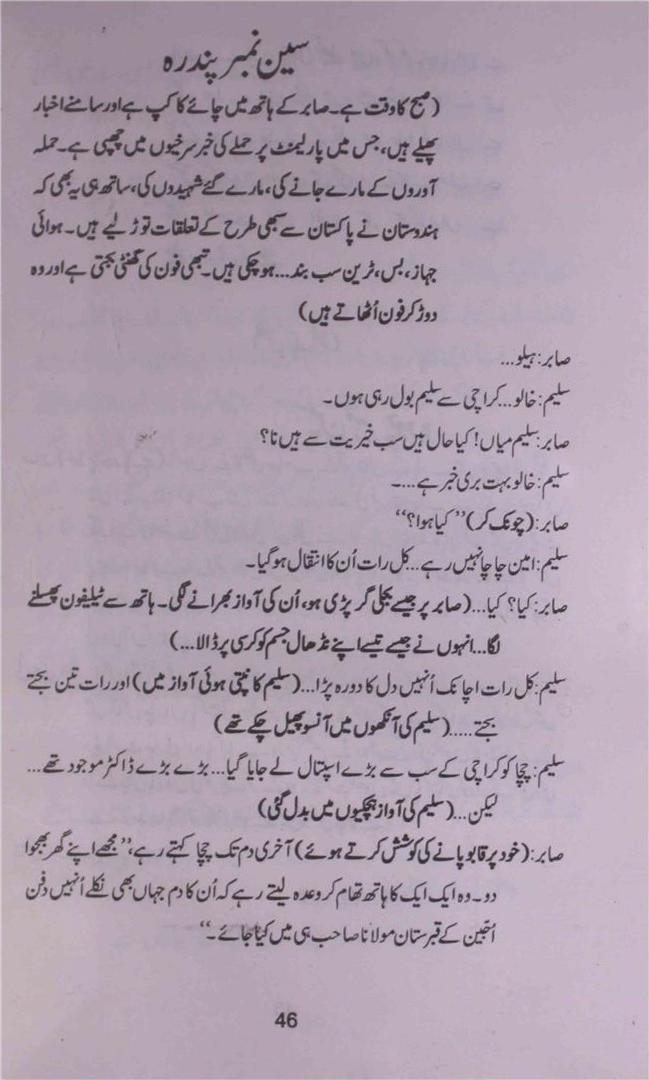 سین نمبر پندرہ
(صبح کا وقت ہے۔ صابر کے ہاتھ میں چائے کا کپ ہے اور سامنے اخبار
پھیلے ہیں، جس میں پارلیمنٹ پر حملے کی خبر سرخیوں میں چھپی ہے۔ حملہ
آوروں کے مارے جانے کی، مارے گئے شہیدوں کی، ساتھ ہی یہ بھی کہ
ہندوستان نے پاکستان سے سبھی طرح کے تعلقات توڑ لیے ہیں۔ ہوائی
جہاز، بس، ٹرین سب بند... ہو چکی ہیں۔ تبھی فون کی گھنٹی بجتی ہے اور وہ
دوڑ کر فون اُٹھاتے ہیں)
صابر: ہیلو...
سلیم: خالو... کراچی سے سلیم بول رہی ہوں۔
صابر: سلیم میاں! کیا حال ہیں سب خیریت سے ہیں نا؟
سلیم: خالو بہت بری خبر ہے...۔
صابر: (چونک کر) ”کیا ہوا؟“
سلیم: امین چاچا نہیں رہے... کل رات اُن کا انتقال ہو گیا۔
صابر: کیا؟ کیا... (صابر پر جیسے بجلی گر پڑی ہو، اُن کی آواز بھرانے لگی۔ ہاتھ سے ٹیلیفون پھسلنے
لگا... انہوں نے جیسے تیسے اپنے نڈھال جسم کو کرسی پر ڈالا...)
سلیم: کل رات اچانک اُنہیں دل کا دورہ پڑا... (سلیم کانپتی ہوئی آواز میں) اور رات تین بجتے
بجتے..... (سلیم کی آنکھوں میں آنسو پھیل چکے تھے)
سلیم: چچا کو کراچی کے سب سے بڑے اسپتال لے جایا گیا... بڑے بڑے ڈاکٹر موجود تھے...
لیکن... (سلیم کی آواز ہچکیوں میں بدل گئی)
صابر: (خود پر قابو پانے کی کوشش کرتے ہوئے) آخری دم تک چچا کہتے رہے، ”مجھے اپنے گھر بھجوا
دو۔ وہ ایک ایک کا ہاتھ تھام کر وعدہ لیتے رہے کہ اُن کا دم جہاں بھی نکلے اُنہیں دفن
اجّین کے قبرستان مولانا صاحب ہی میں کیا جائے۔“
46